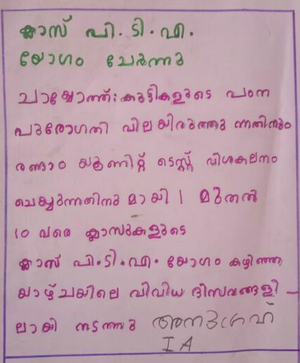 ക്ലാസ് പി. ടി. എ.
യോഗം ചേർന്നു
ചായ്യോത്ത്: കുട്ടികളുടെ പഠന
പുരോഗതി വിലയിരുത്തു ന്നതിനും
രണ്ടാം യൂണിറ്റ് ടെസ്റ്റ് വിശകലനം
ചെയ്യുന്നതിനു മായി 1 മുതൽ
10 വരെ ക്ലാസുകളുടെ
ക്ലാസ് പി. ടി. എ. യോഗം കഴിഞ്ഞ
യാഴ്ചയിലെ വിവിധ ദിസവങ്ങളി -
ലായി നടന്നു അനുഗ്രഹ്
I A